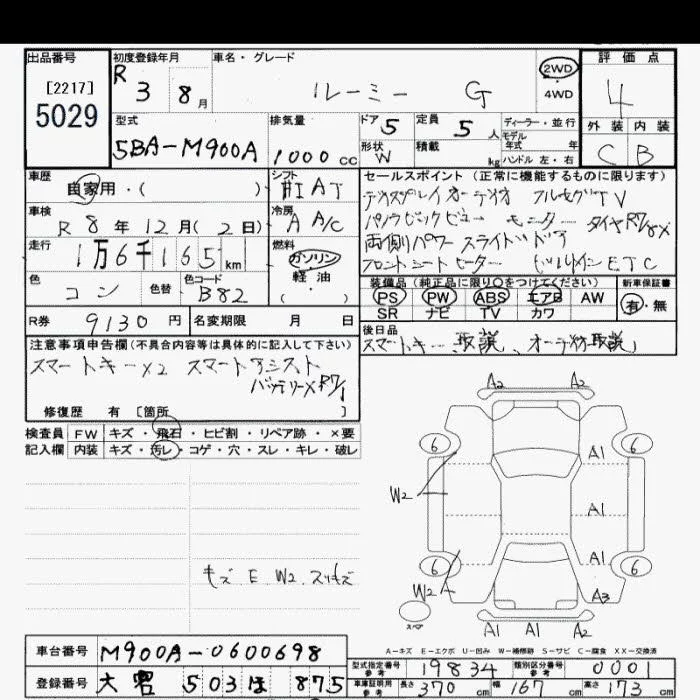 出品番号
[2217]
5029
初度登録年月
R 3 8月
車名・グレード
ルーミー G
2WD
・
4WD
評価点
4
外装 内装
C B
型式
5BA-M900A
排気量
1000 cc
ドア 5
形状 W
定員 5 人
積載 kg
ディーラー・並行
モデル
年式 年
ハンドル 左・右
車歴
自家用・( )
シフト
AT
車検
R 8年 12月( 2日)
冷房
A A/C
走行
1万6千165km
燃料
ガソリン
・
軽・油
( )
色
コン
色替
色コード
B82
R券
9130円
名変期限 月 日
セールスポイント(正常に機能するものに限ります)
ディスプレイオーディオ フルセグTV
パノラミックビューモニター タイヤR7/8X
両側パワースライドドア
フロントシートヒーター ビルトインETC
装備品(純正品に限り○をつけてください)
PS PW ABS エアB AW
SR ナビ TV カワ
新車保証書
有・無
後日品
スマートキー、取説、オーディオ取説、
注意事項申告欄(不具合内容等は具体的に記入して下さい)
スマートキーX2 スマートアシスト
バッテリーX R7/1
修復歴 有 [箇所 ]
検査員
記入欄
FW キズ・飛石・ヒビ割・リペア跡・×要
内装 キズ・汚レ・コゲ・穴・スレ・キレ・破レ
キズ E W2 スリキズ
A2 A2
6 6
A1
W2
A1
A1
6 6
W2
A3
スペア
A1 A1 A2
A-キズ E-エクボ U-凹み W-補修跡 S-サビ C-腐食 XX-交換済
車台番号
M900A-0600698
登録番号
大宮 503 ほ 875
型式指定番号
参考
19834
類別区分番号
参考
0001
車庫証明用
参考
長さ 370 cm 幅 167 cm 高さ 173 cm